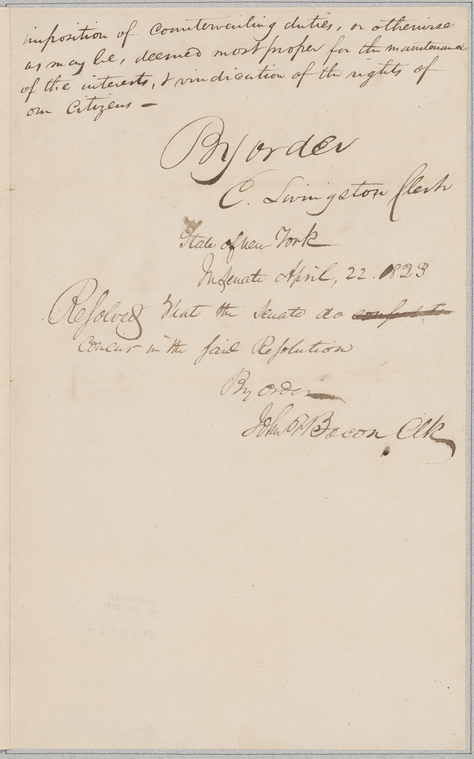 imposition of counterveiling duties, or otherwise
as may be, deemed most proper for the maintenance
of the interests, & vindication of the rights of
our Citizens —
By order
E. Livingston Clerk
State of New York
In Senate April, 22. 1823
Resolved that the Senate do
concur in the said Resolution
By order
John F Bacon Clk